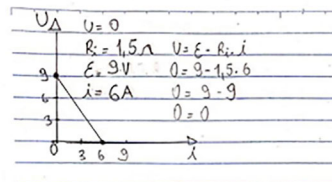 U
U = 0
Ri = 1,5Ω
ε = 9V
i = 6A
U = ε - Ri . i
0 = 9 - 1,5 . 6
0 = 9 - 9
0 = 0
9
6
3
0 3 6 9 i